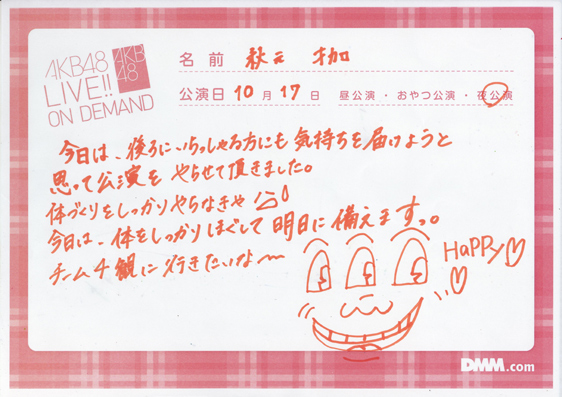 AKB48
LIVE!!
ON DEMAND
AKB
48
名前 秋元 才加
公演日 10月17日 昼公演・おやつ公演・夜公演
今日は、後ろにいらっしゃる方にも気持ちを届けようと
思って公演をやらせて頂きました。
体づくりをしっかりやらなきゃ
今日は、体をしっかりほぐして明日に備えますっ。
チーム4観に行きたいな〜
HaPPy
DMM.com